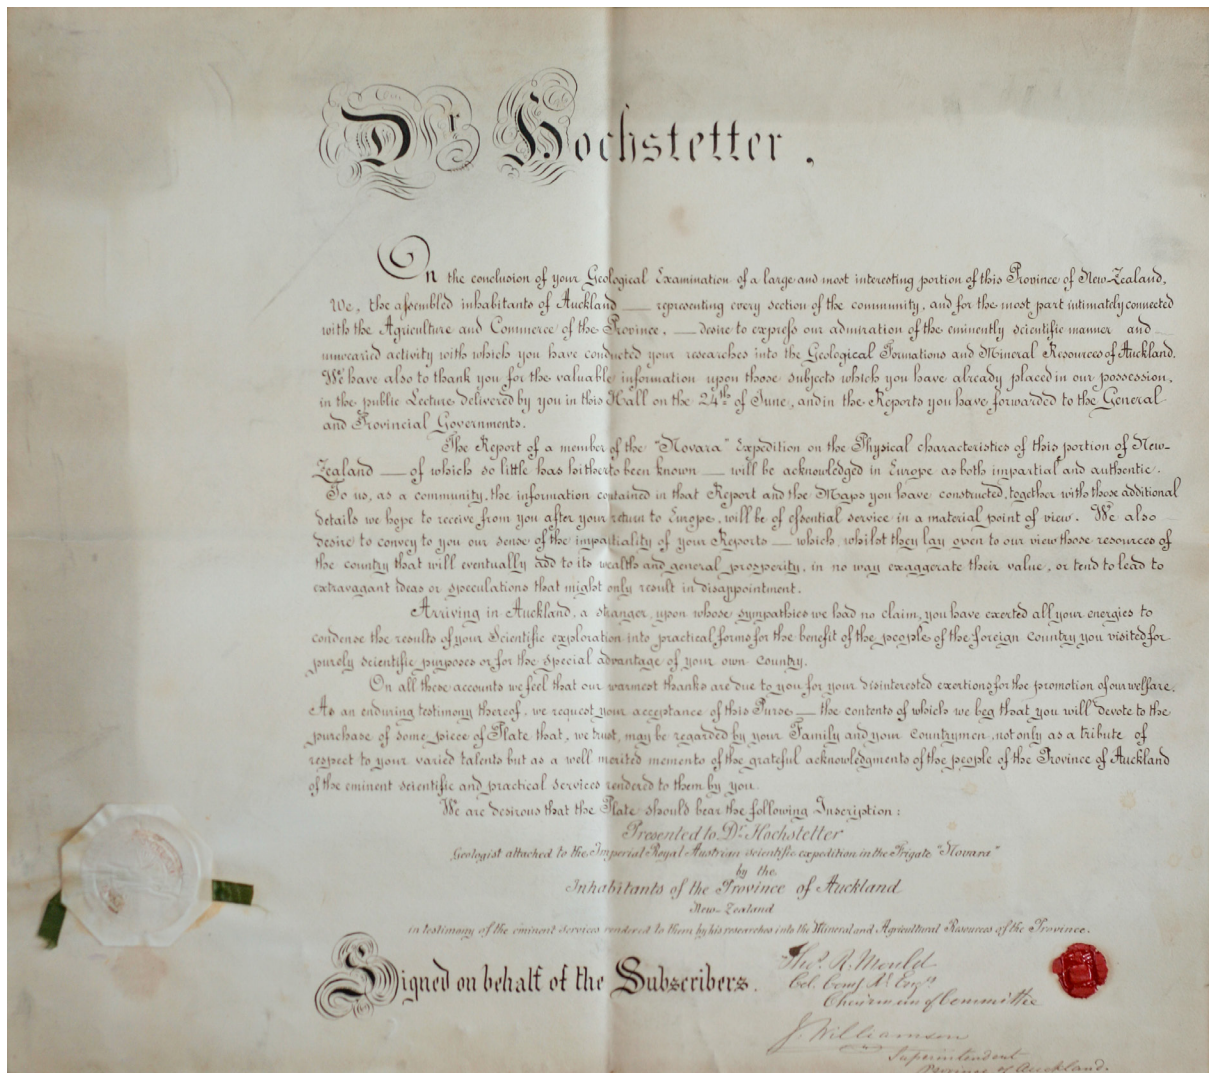 Dr Hochstetter,
On the conclusion of your Geological Examination of a large and most interesting portion of this Province of New-Zealand,
We, the assembled inhabitants of Auckland — representing every section of the community, and for the most part intimately connected
with the Agriculture and Commerce of the Province, — desire to express our admiration of the eminently scientific manner and
unwearied activity with which you have conducted your researches into the Geological Formations and Mineral Resources of Auckland.
We have also to thank you for the valuable information upon those subjects which you have already placed in our possession,
in the public Lecture delivered by you in this Hall on the 24th of June, and in the Reports you have forwarded to the General
and Provincial Governments.
The Report of a member of the "Novara" Expedition on the Physical characteristics of this portion of New-
Zealand — of which so little has hitherto been known — will be acknowledged in Europe as both impartial and authentic.
To us, as a community, the information contained in that Report and the Maps you have constructed, together with those additional
details we hope to receive from you after your return to Europe, will be of essential service in a material point of view. We also
desire to convey to you our sense of the impartiality of your Reports — which, whilst they lay open to our view those resources of
the country that will eventually add to its wealth and general prosperity, in no way exaggerate their value, or tend to lead to
extravagant ideas or speculations that might only result in disappointment.
Arriving in Auckland, a stranger, upon whose sympathies we had no claim, you have exerted all your energies to
condense the results of your Scientific exploration into practical forms for the benefit of the people of the foreign Country you visited for
purely scientific purposes or for the special advantage of your own Country.
On all these accounts we feel that our warmest thanks are due to you for your disinterested exertions for the promotion of our welfare.
As an enduring testimony thereof, we request your acceptance of this Purse — the contents of which we beg that you will devote to the
purchase of some piece of Plate that, we trust, may be regarded by your Family and your Countrymen, not only as a tribute of
respect to your varied talents but as a well merited memento of the grateful acknowledgments of the people of the Province of Auckland
of the eminent scientific and practical services rendered to them by you.
We are desirous that the Plate should bear the following Inscription:
Presented to Dr Hochstetter
Geologist attached to the Imperial Royal Austrian scientific expedition in the Frigate "Novara"
by the
Inhabitants of the Province of Auckland
New-Zealand
in testimony of the eminent services rendered to them by his researches into the Mineral and Agricultural Resources of the Province.
Signed on behalf of the Subscribers.
Thos. R. Mould
Col. Comg Rl. Engrs
Chairman of Committee
J. Williamson
Superintendent
Province of Auckland.